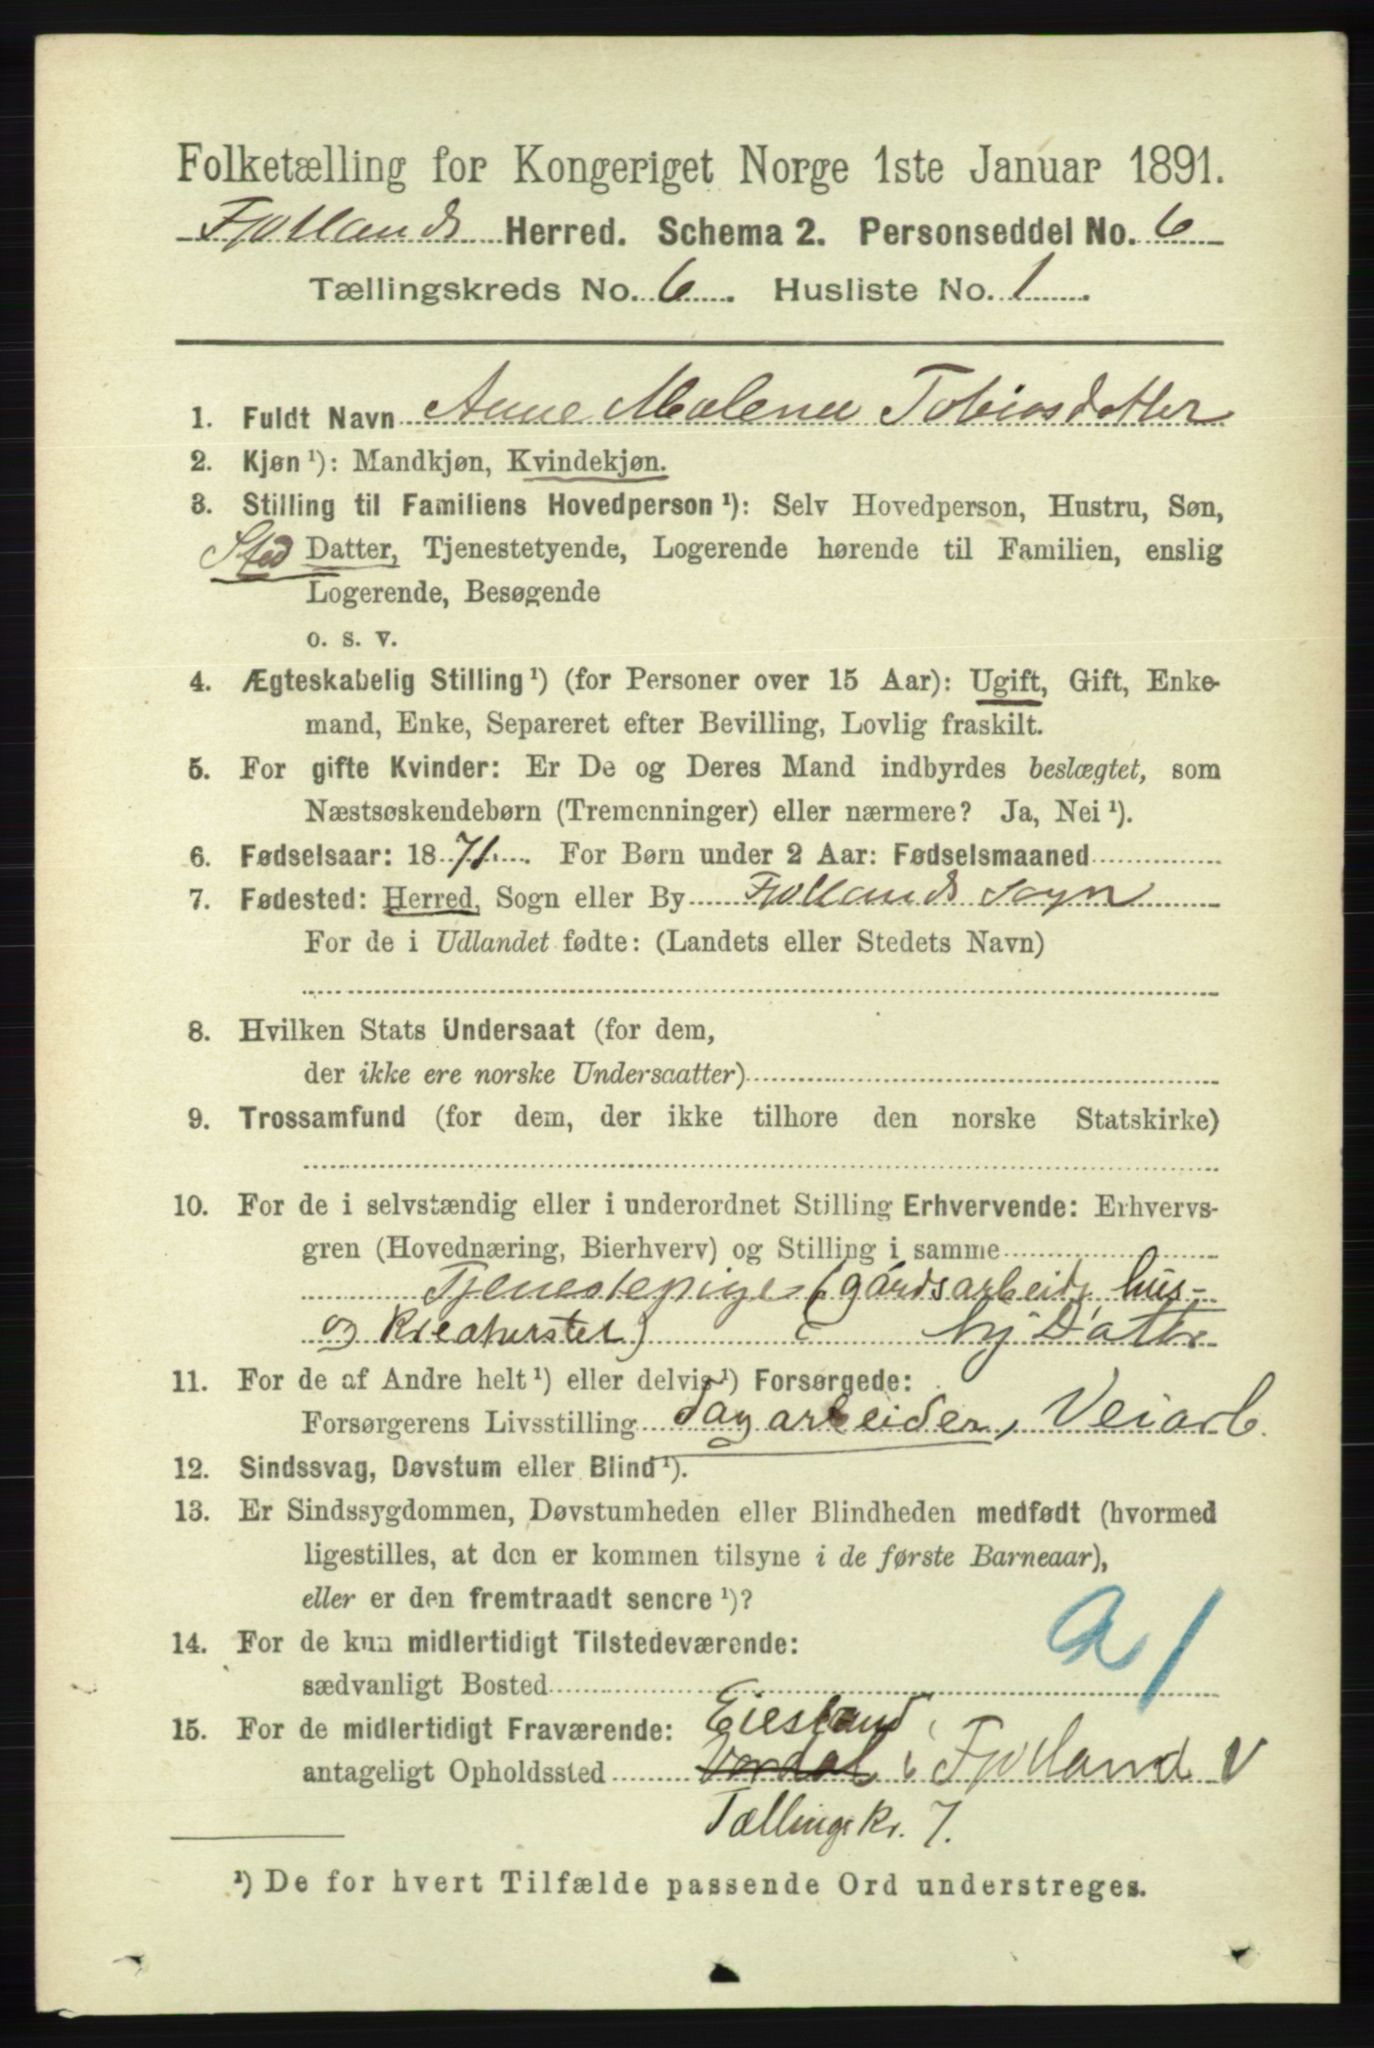 Folketælling for Kongeriget Norge 1ste Januar 1891.
Fjotlands Herred. Schema 2. Personseddel No. 6
Tællingskreds No. 6. Husliste No. 1.
1. Fuldt Navn Anne Malene Tobiasdatter
2. Kjøn ¹): Mandkjøn, Kvindekjøn.
3. Stilling til Familiens Hovedperson ¹): Selv Hovedperson, Hustru, Søn,
Sted Datter, Tjenestetyende, Logerende hørende til Familien, enslig
Logerende, Besøgende
o. s. v.
4. Ægteskabelig Stilling ¹) (for Personer over 15 Aar): Ugift, Gift, Enke-
mand, Enke, Separeret efter Bevilling, Lovlig fraskilt.
5. For gifte Kvinder: Er De og Deres Mand indbyrdes beslægtet, som
Næstsøskendebørn (Tremenninger) eller nærmere? Ja, Nei ¹).
6. Fødselsaar: 1871. For Børn under 2 Aar: Fødselsmaaned
7. Fødested: Herred, Sogn eller By Fjotlands Sogn
For de i Udlandet fødte: (Landets eller Stedets Navn)
8. Hvilken Stats Undersaat (for dem,
der ikke ere norske Undersaatter)
9. Trossamfund (for dem, der ikke tilhøre den norske Statskirke)
10. For de i selvstændig eller i underordnet Stilling Erhvervende: Erhvervs-
gren (Hovednæring, Bierhverv) og Stilling i samme
Tjenestepige (gårdsarbeid, hus-
og kreaturstel) hj Datter
11. For de af Andre helt ¹) eller delvis ¹) Forsørgede:
Forsørgerens Livsstilling Dagarbeider, Veiarb.
12. Sindssvag, Døvstum eller Blind ¹).
13. Er Sindssygdommen, Døvstumheden eller Blindheden medfødt (hvormed
ligestilles, at den er kommen tilsyne i de første Barneaar),
eller er den fremtraadt senere ¹)?
14. For de kun midlertidigt Tilstedeværende:
sædvanligt Bosted
a 1
15. For de midlertidigt Fraværende: Eiesland,
antageligt Opholdssted i Fjotland V
Tællingskr. 7.
¹) De for hvert Tilfælde passende Ord understreges.